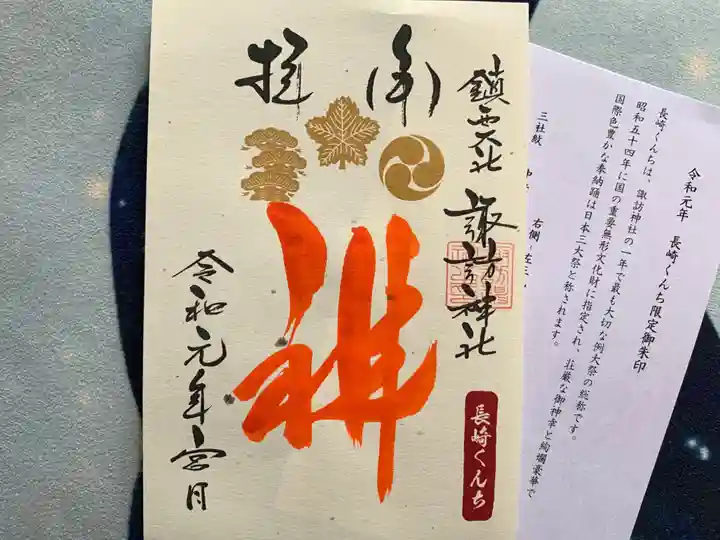 奉拝
鎮西大社 諏訪神社
長崎くんち
令和元年 月
令和元年 長崎くんち限定御朱印
長崎くんちは、諏訪神社の一年で最も大切な例大祭の総称です。
昭和五十四年に国の重要無形文化財に指定され、荘厳な御神幸と絢爛豪華で
国際色豊かな奉納踊は日本三大祭と称されます。
三社紋
右側